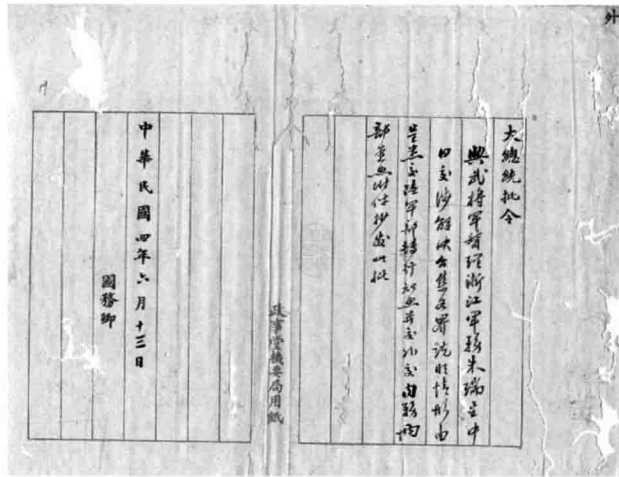 外
大總統批令
興武將軍督理浙江軍務朱瑞呈中
日交涉解決公集各界說明情形由
呈悉交陸軍部轉行知照并交外交內務兩
部查照附件抄發此批
政事堂機要局用紙
中華民國四年六月十三日
國務卿